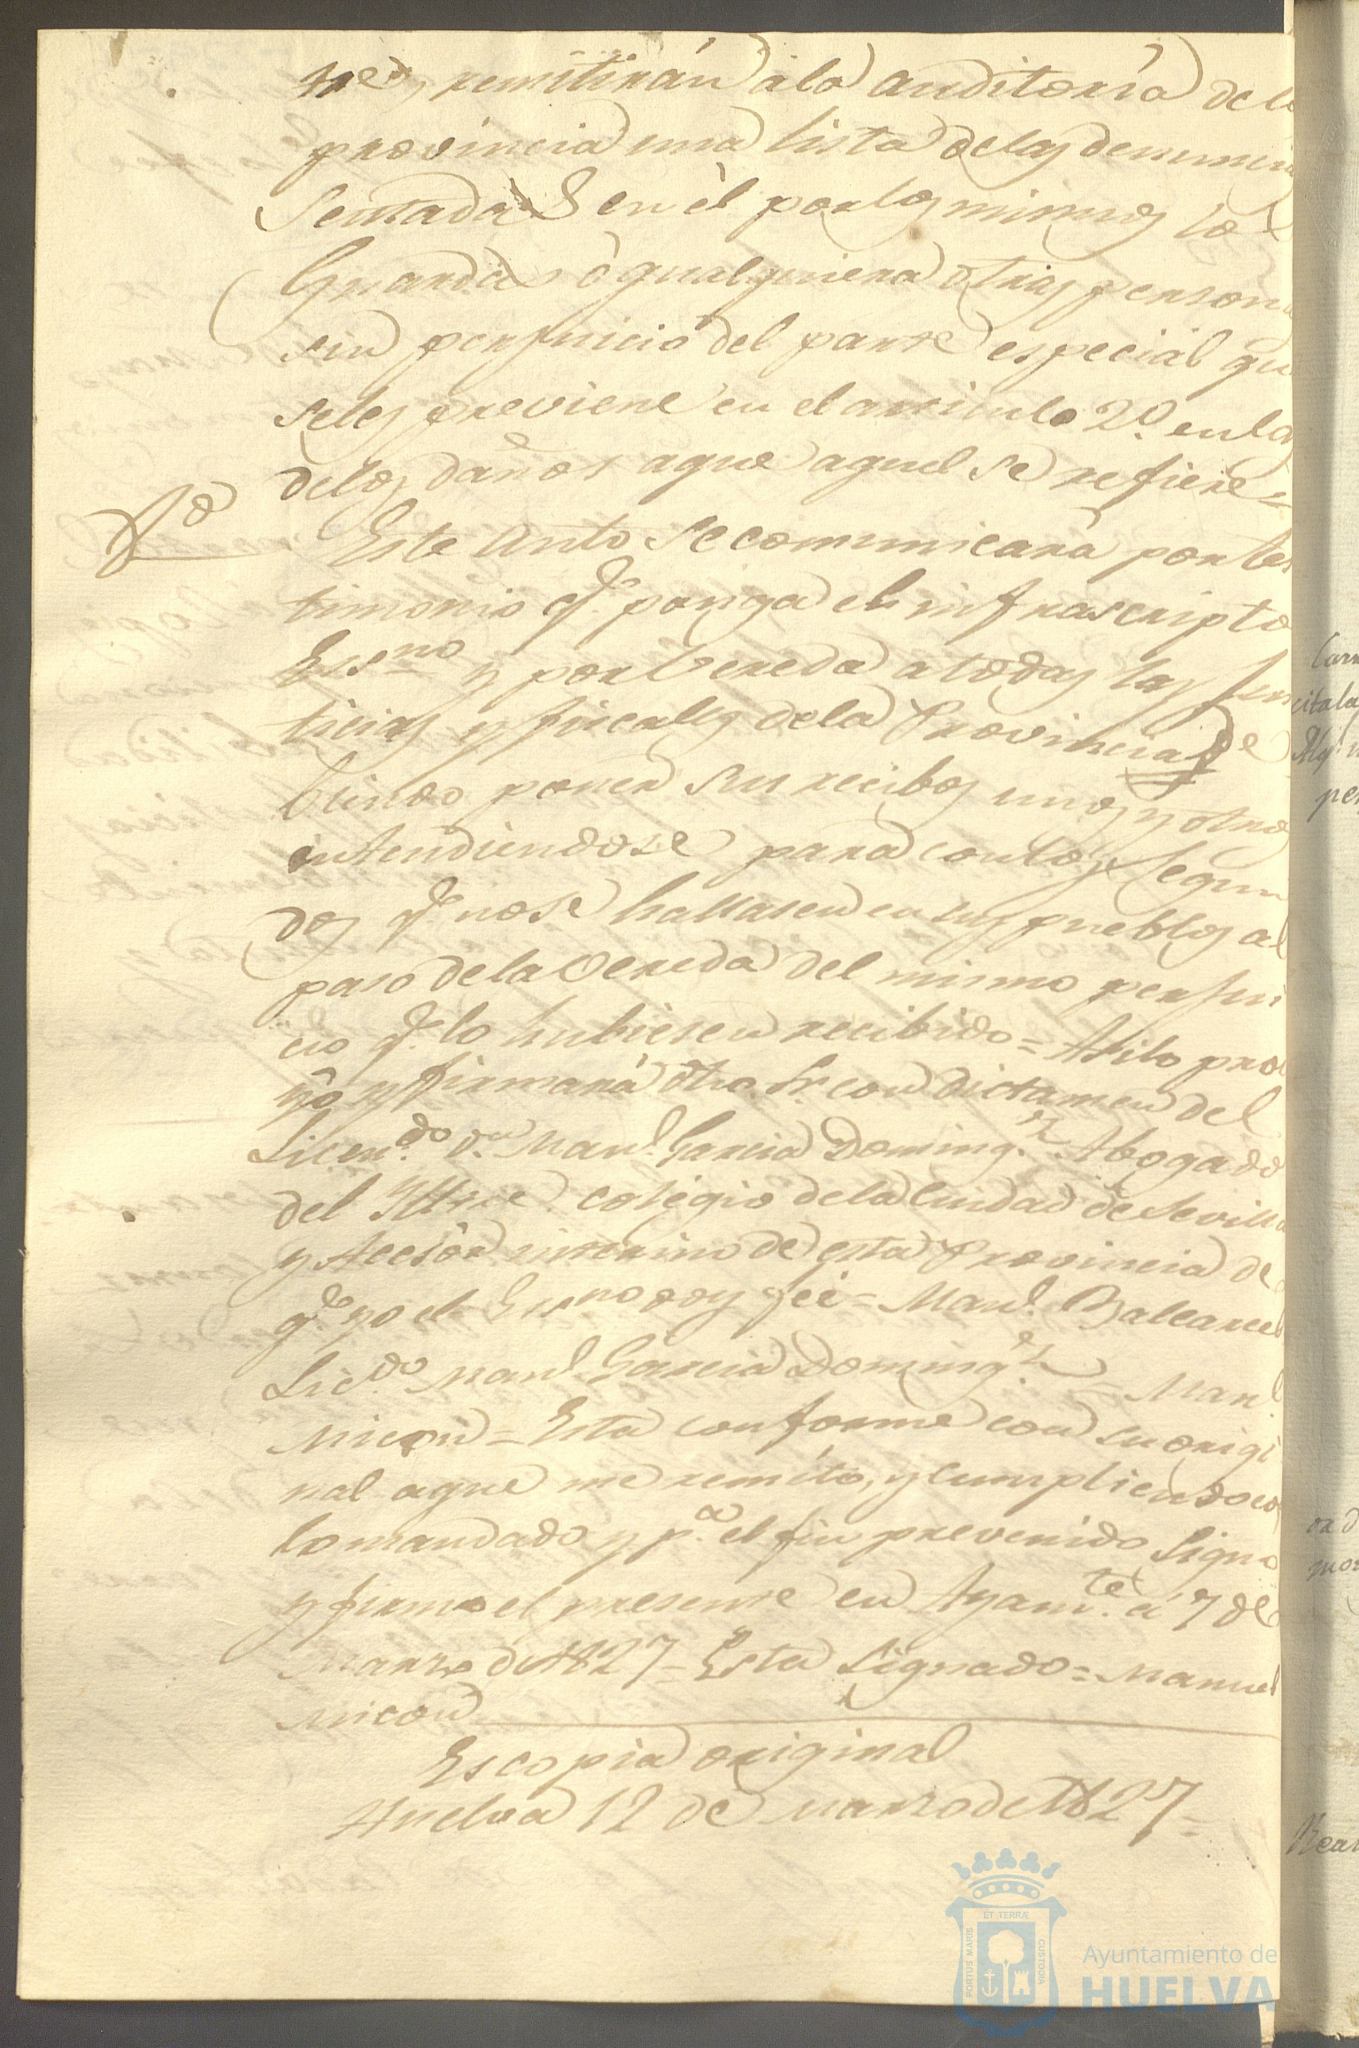 tres remitiran à la auditoría de la
provincia una lista de las denuncia
Sentadas en èl por los mismos lo
Guardas ò qualquiera otras persona
sin perjuicio del parte especiàl que
seles previene en el articulo 2º. en los
delos daños aque aquel se refiere=
Este Auto se comunicarà por tes
timonio qe. ponga el infrascripto
Essno y por Vereda a todas las jus
ticias y fiscales dela Provincia de
biendo poner sus recibos unos y otros
entendiendose para con los segun
dos qe. nose hallasen en sus pueblos al
paso dela Vereda del mismo perjui
cio qe. lo hubiesen recibido= Asilo pro
yò y firmarà dho. Sr. con dictamen del
Licendo. dn. Manl. Garcia Doming.z Abogado
del Yltre. colegio dela Ciudad de Sevilla
y Accesòr interino de esta Provincia de
qe yo el Essno doy feè= Manl. Balcarcel
Licdo. Manl. Garcia Doming.z = Manl
Micon= Esta conforme con su origi
nal aque me remito, y cumpliendo con
lo mandado y pa. el fin prevenido Signo
y firmo el presente en Ayamte. a 7 de
Marzo de 1827= Esta Signado= Manuel
Micon
Es copia original
Huelva 12 de Marzo de 1827=
Carr
cita la
Alg.
per
or d
mor
Rear
ET TERRÆ
PORTUS MARIS
CUSTODIA
Ayuntamiento de
HUELVA